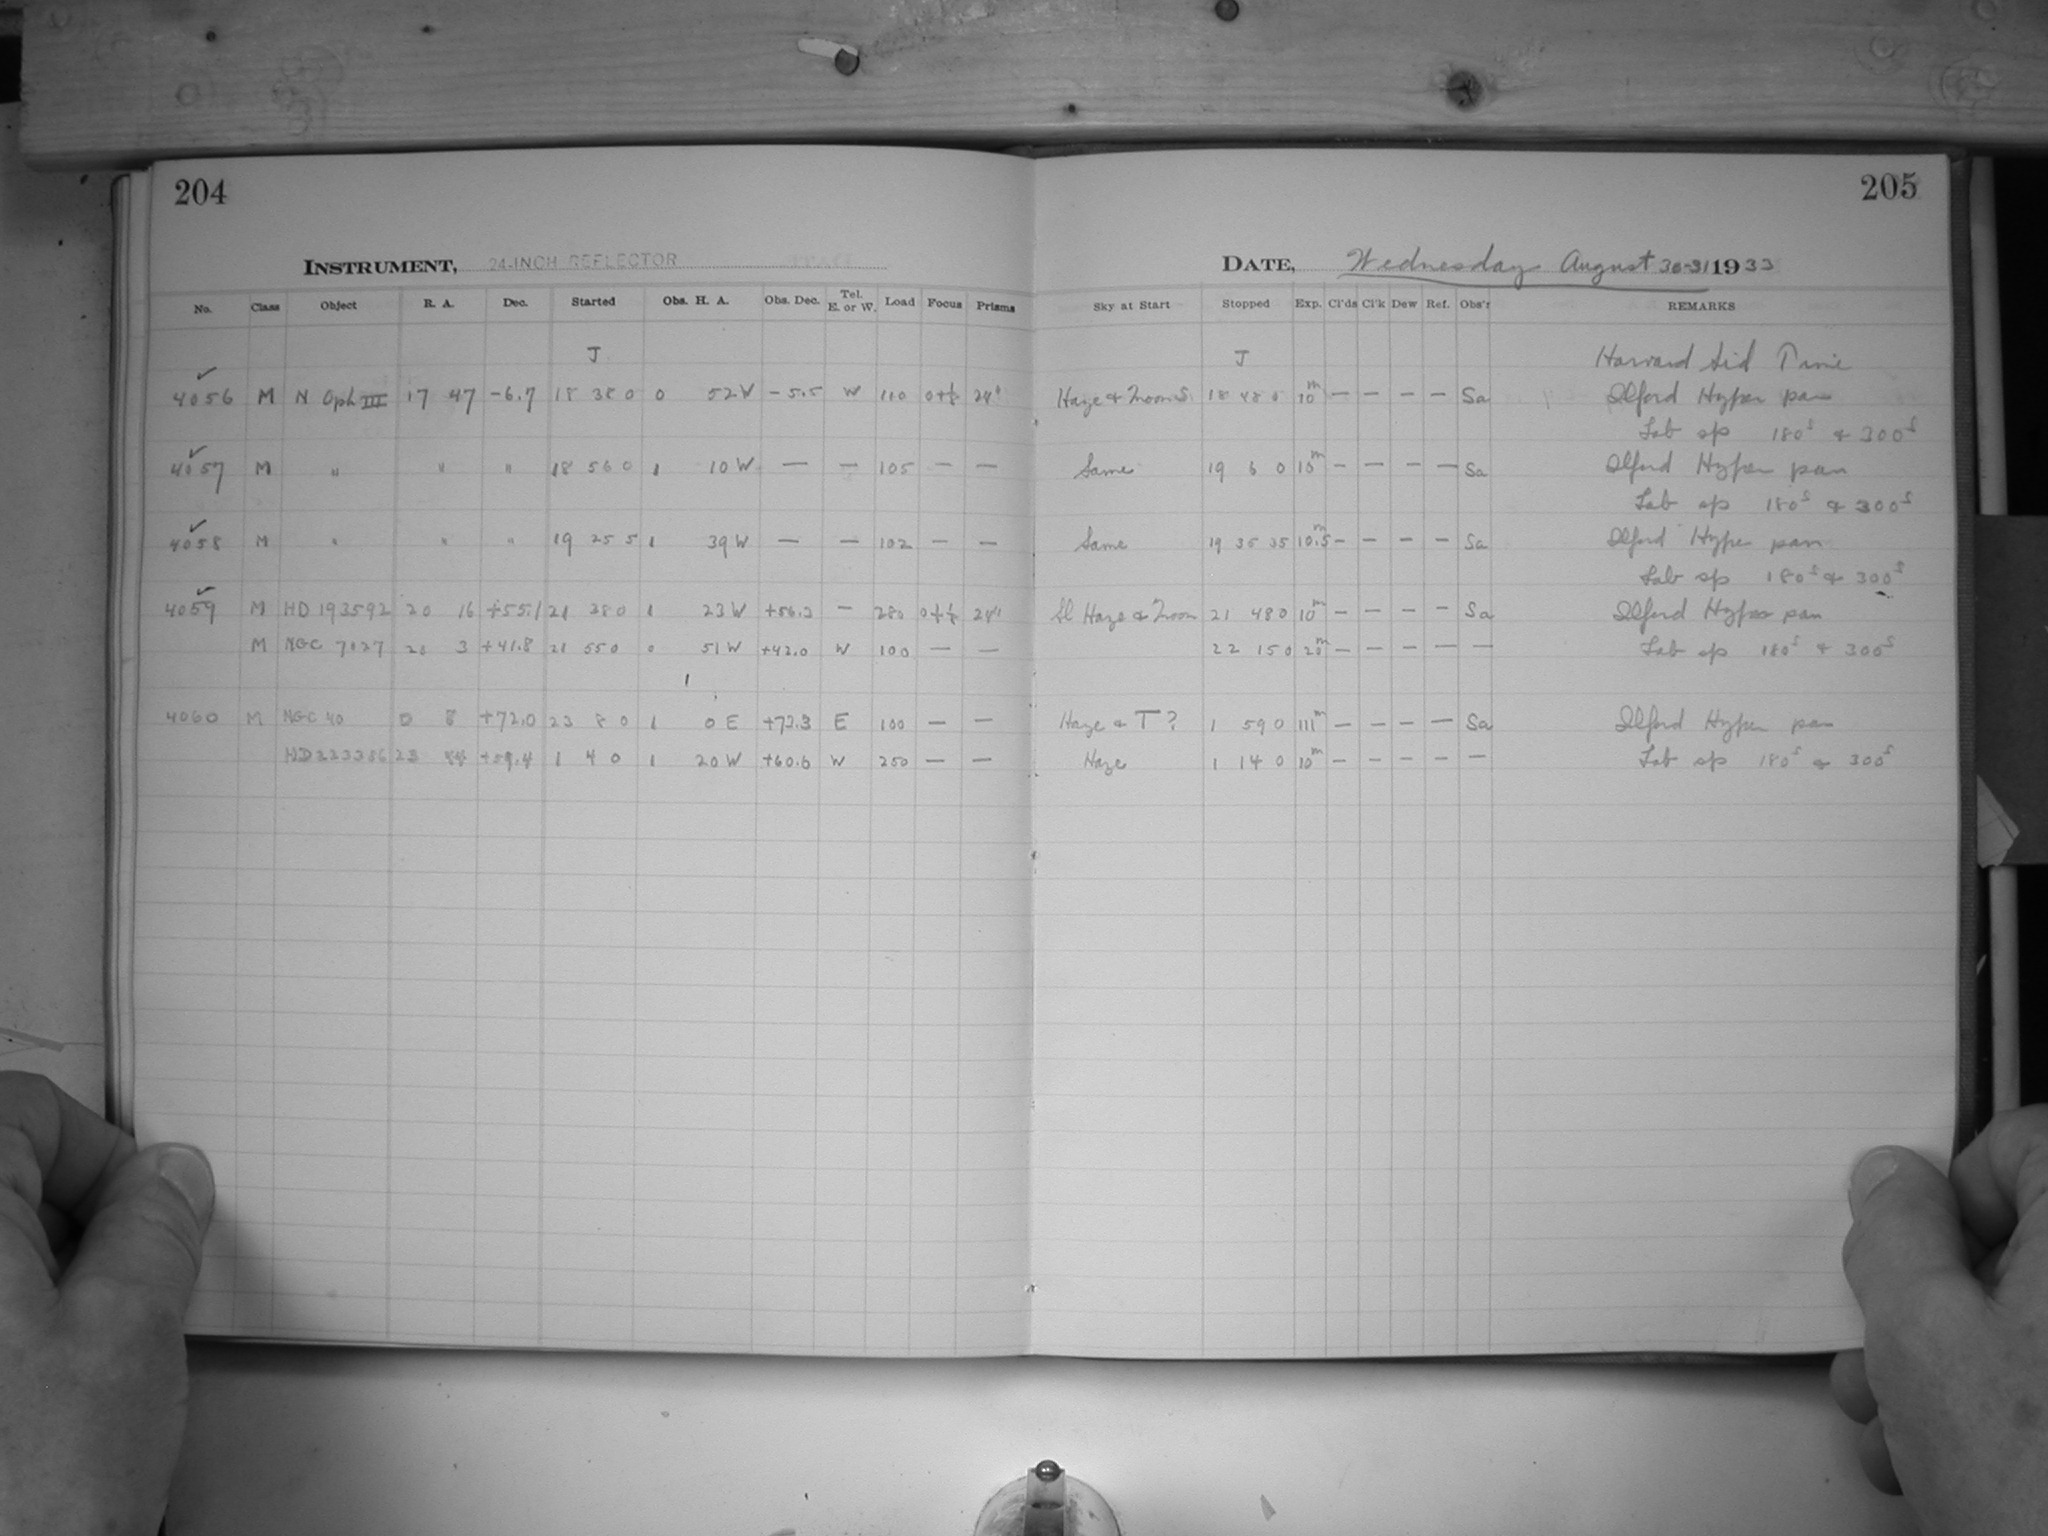 204
205
INSTRUMENT, 24-INCH REFLECTOR
DATE, Wednesday August 30-31 1933
No. Class Object R. A. Dec. Started Obs. H. A. Obs. Dec. Tel. E. or W. Load Focus Prisms Sky at Start Stopped Exp. Cl'ds Cl'k Dew Ref. Obs'r REMARKS
J J Harvard Sid Time
4056 M N Oph III 17 47 -6.7 18 38 0 0 52 W -5.5 W 110 24" Haze & Moon S. 18 48 0 10m — — — — Sa Ilford Hyper pan
Lab sp 180s & 300s
4057 M " " " 18 56 0 1 10 W — — 105 — — Same 19 6 0 10m — — — — Sa Ilford Hyper pan
Lab sp 180s & 300s
4058 M " " " 19 25 5 1 39 W — — 102 — — Same 19 35 35 10.5m — — — — Sa Ilford Hyper pan
Lab sp 180s & 300s
4059 M HD 193592 20 16 +55.1 21 38 0 1 23 W +56.3 — 280 24" Sl Haze & Moon 21 48 0 10m — — — — Sa Ilford Hyper pan
M NGC 7027 3 +41.8 21 55 0 0 51 W +42.0 W 100 — — 22 15 0 20m — — — — — Lab sp 180s & 300s
4060 M NGC 40 0 8 +72.0 23 8 0 1 0 E +72.3 E 100 — — Haze & T? 1 59 0 111m — — — — Sa Ilford Hyper pan
23 1 4 0 1 20 W +60.6 W 250 — — Haze 1 14 0 10m — — — — — Lab sp 180s & 300s